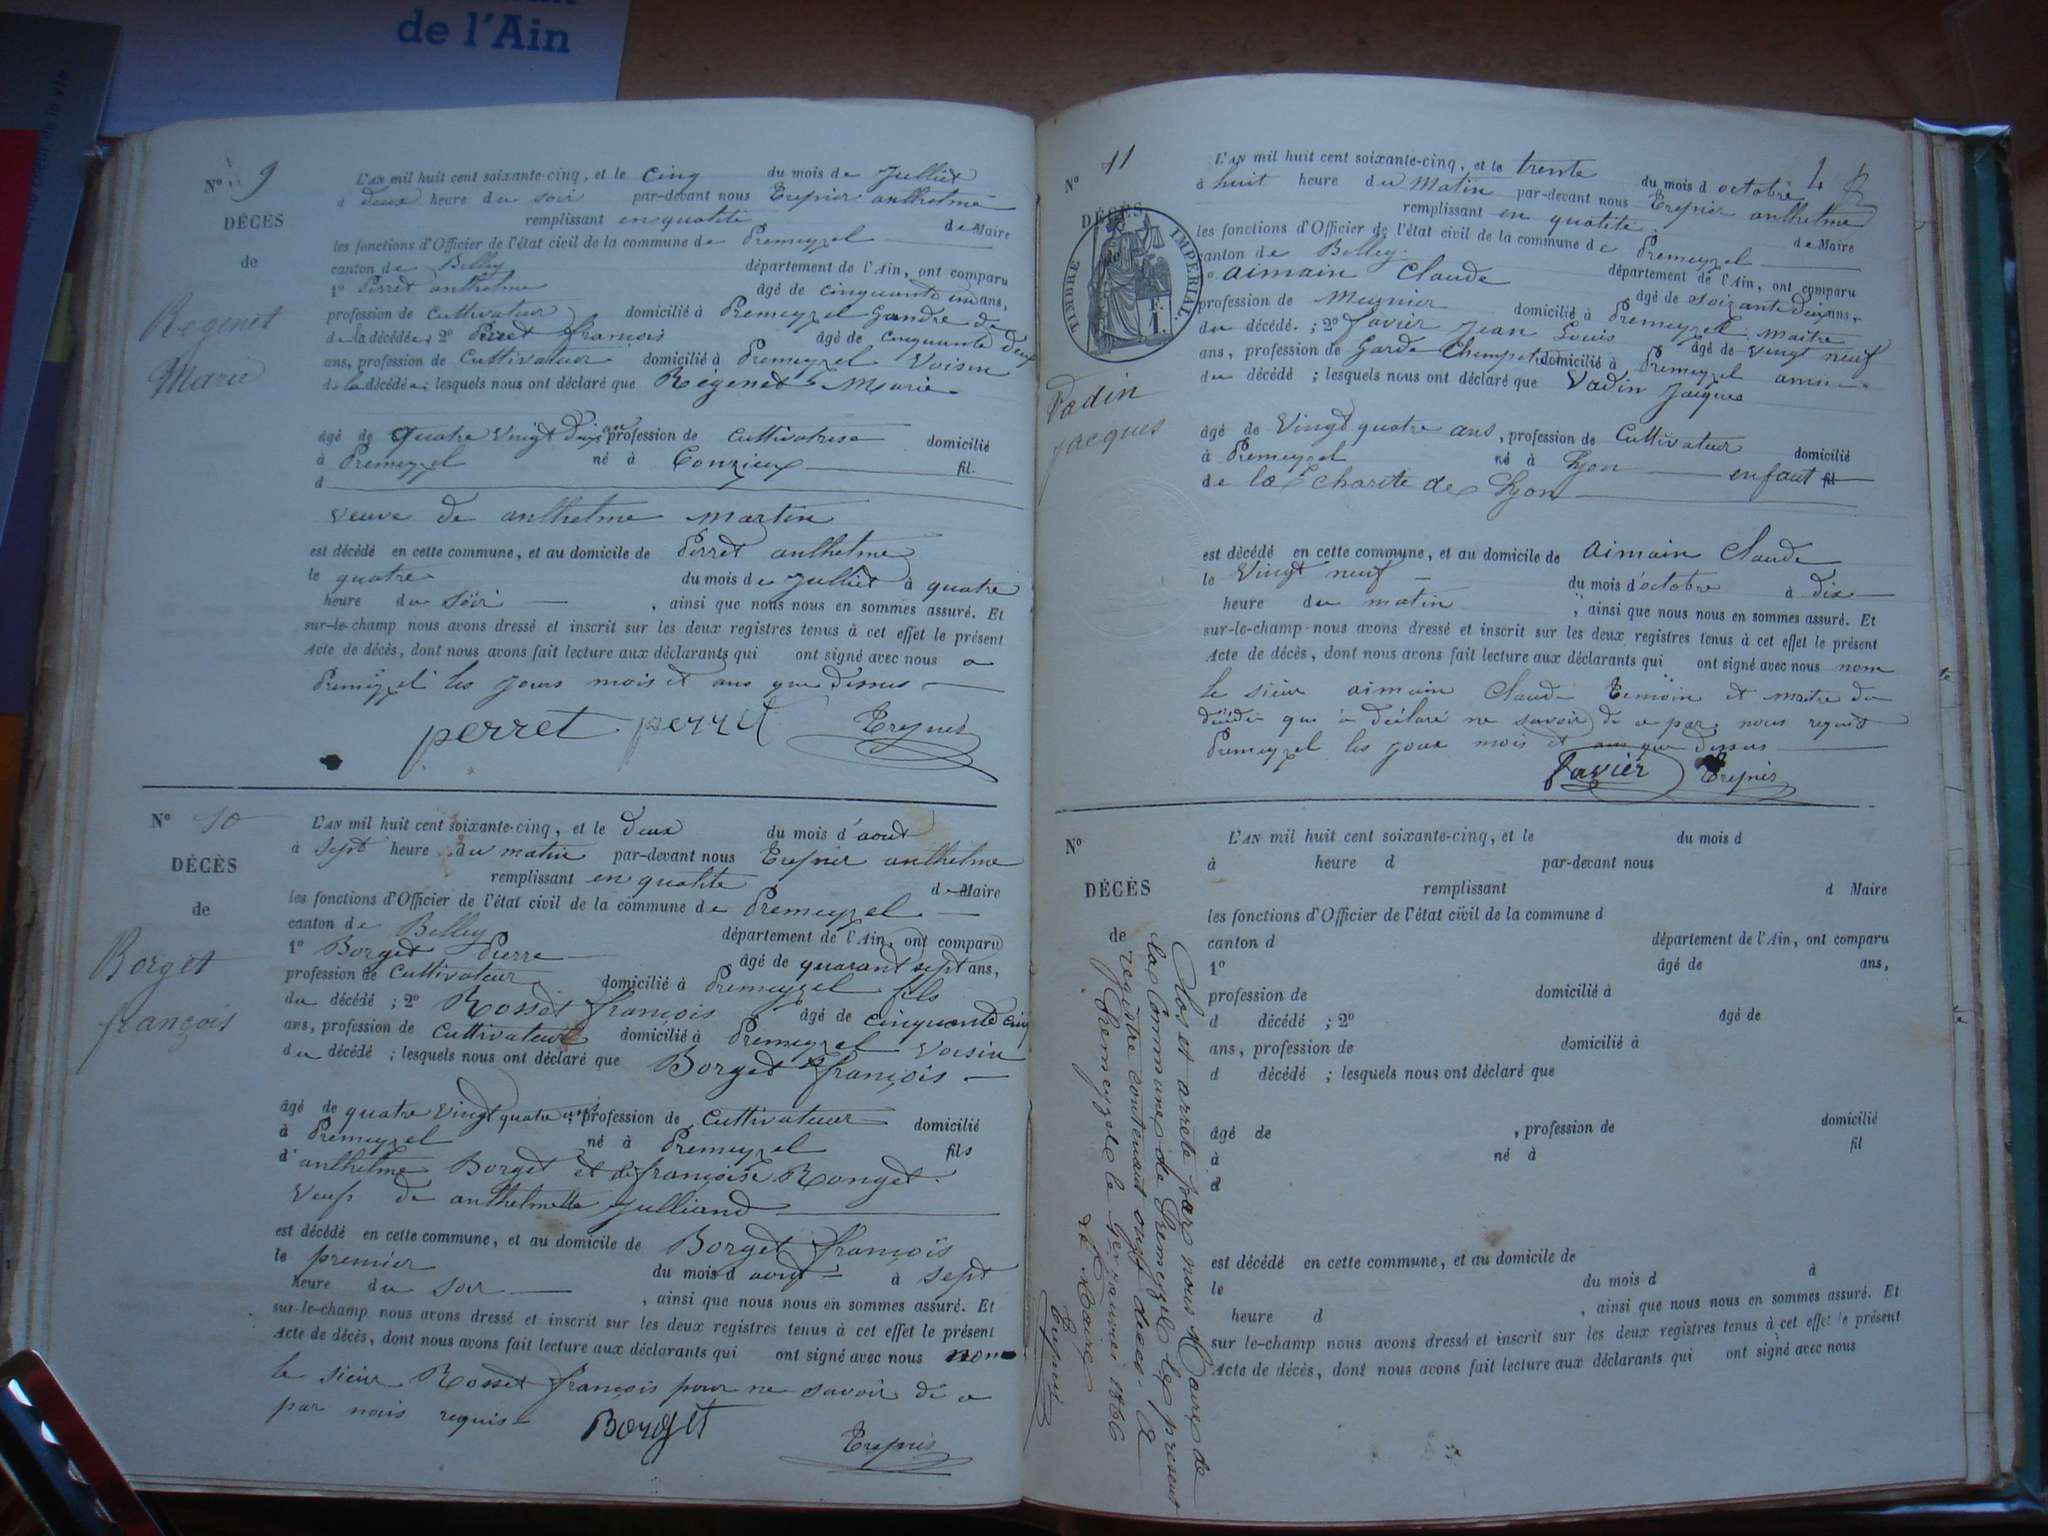 de l'Ain
N° 9
DÉCÈS
de
Regenet
Marie
L'AN mil huit cent soixante-cinq, et le cinq du mois de Julliet
à deux heure du soir par-devant nous Trepier anthelme
remplissant en qualité de Maire
les fonctions d'Officier de l'état civil de la commune de Premeyzel
canton de Belley département de l'Ain, ont comparu
1° Perret anthelme âgé de cinquante un ans,
profession de Cultivateur domicilié à Premeyzel Gendre de
de la décédée 2° Perret françois âgé de cinquante deux
ans, profession de Cultivateur domicilié à Premeyzel Voisin
de la décédée; lesquels nous ont déclaré que Régenet Marie
âgé de quatre vingt deux an profession de Cultivatrise domicilié
à Premeyzel né à Conzieux fil.
d
veuve de anthelme Martin
est décédé en cette commune, et au domicile de Perret anthelme
le quatre du mois de Julliet à quatre
heure du soir, ainsi que nous nous en sommes assuré. Et
sur-le-champ nous avons dressé et inscrit sur les deux registres tenus à cet effet le présent
Acte de décès, dont nous avons fait lecture aux déclarants qui ont signé avec nous a
Premeyzel les jours mois et ans que dessus
perret perret Trepier
N° 10
DÉCÈS
de
Borget
françois
L'AN mil huit cent soixante-cinq, et le deux du mois d'aout
à sept heure du matin par-devant nous Trepier anthelme
remplissant en qualité de Maire
les fonctions d'Officier de l'état civil de la commune de Premeyzel
canton de Belley département de l'Ain, ont comparu
1° Borget Pierre âgé de quarant sept ans,
profession de Cultivateur domicilié à Premeyzel fils
du décédé; 2° Rosset françois âgé de cinquante cinq
ans, profession de Cultivateur domicilié à Premeyzel Voisin
du décédé; lesquels nous ont déclaré que Borget françois
âgé de quatre vingt quatre ans, profession de Cultivateur domicilié
à Premeyzel né à Premeyzel fils
d'anthelme Borget et de françoise Ronget
Veuf de anthelmette Julliand
est décédé en cette commune, et au domicile de Borget françois
le premier du mois d aout à sept
heure du soir, ainsi que nous nous en sommes assuré. Et
sur-le-champ nous avons dressé et inscrit sur les deux registres tenus à cet effet le présent
Acte de décès, dont nous avons fait lecture aux déclarants qui ont signé avec nous non
le sieur Rosset françois pour ne savoir de a
par nous requis
Borget
Trepier
N° 11
4
DÉCÈS
de
TIMBRE IMPÉRIAL
F. 1.
Vadin
jacques
L'AN mil huit cent soixante-cinq, et le trente du mois d octobre
à huit heure du Matin par-devant nous Trepier anthelme
remplissant en qualité de Maire
les fonctions d'Officier de l'état civil de la commune de Premeyzel
canton de Belley département de l'Ain, ont comparu
1° aimain Claude âgé de soixante deux ans,
profession de Meunier domicilié à Premeyzel Maitre
du décédé; 2° favier Jean Louis âgé de vingt neuf
ans, profession de Garde Champetre domicilié à Premeyzel amie
du décédé; lesquels nous ont déclaré que Vadin Jacques
âgé de Vingt quatre ans, profession de Cultivateur domicilié
à Premeyzel né à Lyon enfant fil
de la Charite de Lyon
est décédé en cette commune, et au domicile de aimain Claude
le Vingt neuf du mois d'octobre à dix
heure du matin, ainsi que nous nous en sommes assuré. Et
sur-le-champ nous avons dressé et inscrit sur les deux registres tenus à cet effet le présent
Acte de décès, dont nous avons fait lecture aux déclarants qui ont signé avec nous nom
le sieur aimain Claude Temoin et maitre du
décédé qui a déclaré ne savoir de a par nous requis
Premeyzel les jour mois et ans que dessus
favier Trepier
N°
DÉCÈS
de
L'AN mil huit cent soixante-cinq, et le du mois d
à heure d par-devant nous
remplissant d Maire
les fonctions d'Officier de l'état civil de la commune d
canton d département de l'Ain, ont comparu
1° âgé de ans,
profession de domicilié à
d décédé; 2° âgé de
ans, profession de domicilié à
d décédé; lesquels nous ont déclaré que
âgé de, profession de domicilié
à né à fil
d
est décédé en cette commune, et au domicile de
le du mois d à
heure d, ainsi que nous nous en sommes assuré. Et
sur-le-champ nous avons dressé et inscrit sur les deux registres tenus à cet effet le présent
Acte de décès, dont nous avons fait lecture aux déclarants qui ont signé avec nous
Clos et arreté par nous Maire de
la Commune de Premeyzel le present
registre contenant onze décès. A
Premeyzel le 1er janvier 1866
Le Maire
Trepier